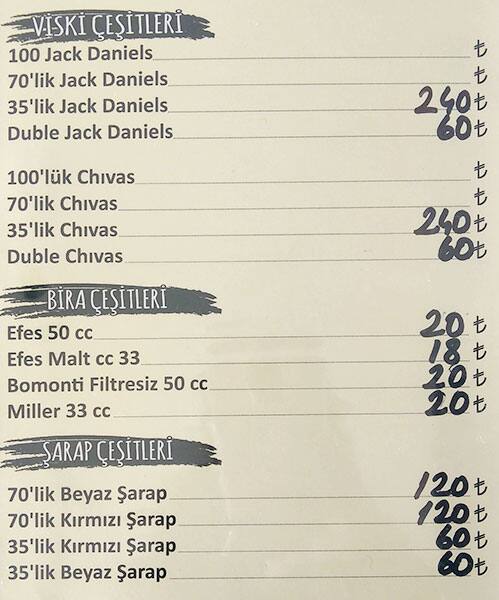 VİSKİ ÇEŞİTLERİ
100 Jack Daniels ₺
70'lik Jack Daniels ₺
35'lik Jack Daniels 240 ₺
Duble Jack Daniels 60 ₺
100'lük Chıvas ₺
70'lik Chıvas ₺
35'lik Chıvas 240 ₺
Duble Chıvas 60 ₺
BİRA ÇEŞİTLERİ
Efes 50 cc 20 ₺
Efes Malt cc 33 18 ₺
Bomonti Filtresiz 50 cc 20 ₺
Miller 33 cc 20 ₺
ŞARAP ÇEŞİTLERİ
70'lik Beyaz Şarap 120 ₺
70'lik Kırmızı Şarap 120 ₺
35'lik Kırmızı Şarap 60 ₺
35'lik Beyaz Şarap 60 ₺